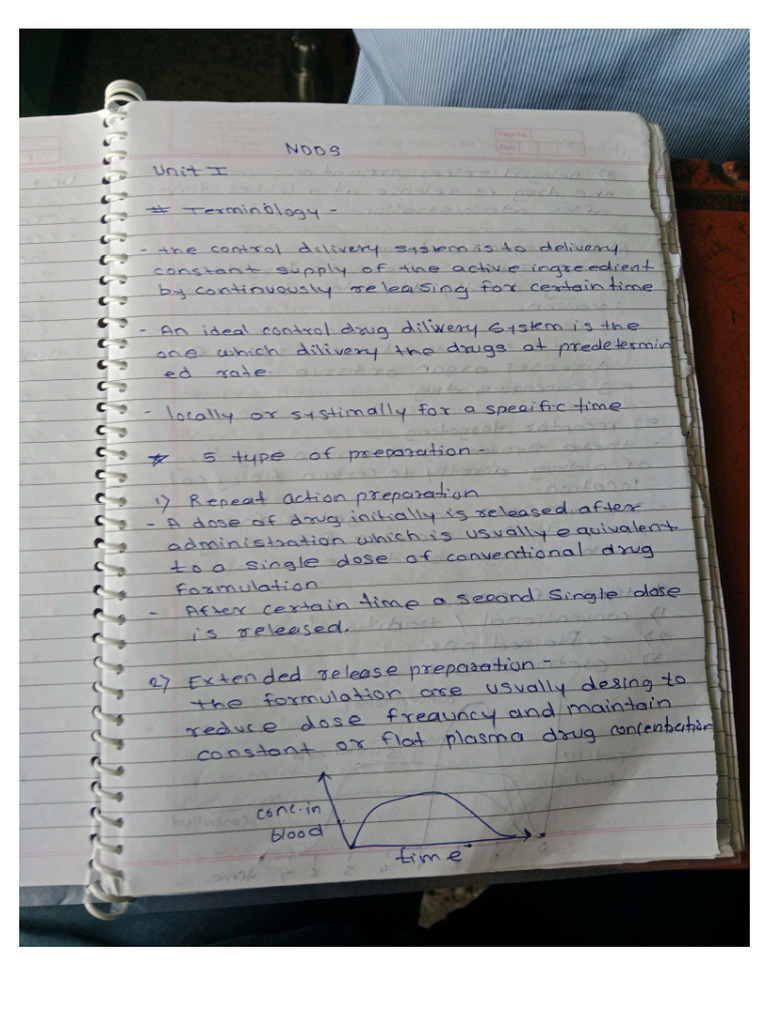 Page No.
Date
NDDS
Unit I
# Terminology -
- the control dilivery system is to delivery
constant supply of the active ingreedient
by continuously releasing for certain time
- An ideal control drug dilivery system is the
one which dilivery the drugs at predetermin
ed rate.
- locally or systimally for a specific time
* 5 type of preparation -
1) Repeat action preparation
- A dose of drug initially is released after
administration which is usually equivalent
to a single dose of conventional drug
formulation
- After certain time a second single dose
is released.
2) Extended release preparation -
the formulation are usually desing to
reduce dose freauncy and maintain
constant or flat plasma drug concentration
conc. in
blood
time